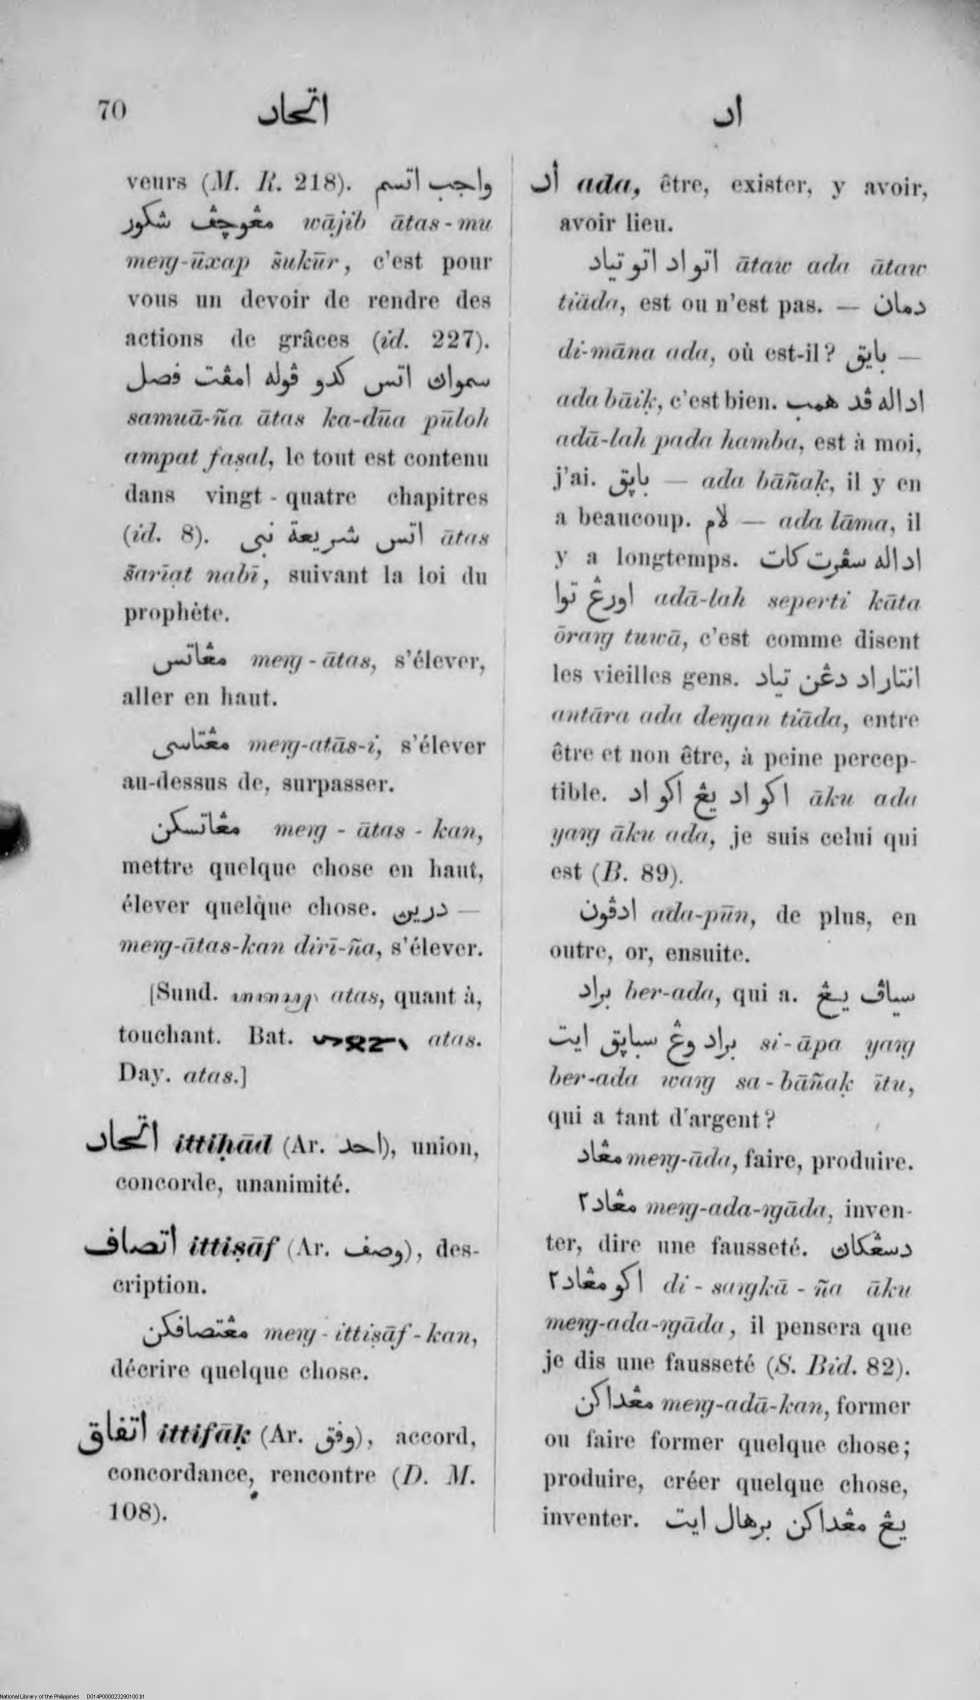 70
اتّحاد
اد
veurs (M. R. 218). واجب اتسم
مڠوچڤ شكور wājib ātas-mu
meng-ūxap šukūr, c'est pour
vous un devoir de rendre des
actions de grâces (id. 227).
سموان اتس كدو ڤوله امڤت فصل
samuā-ña ātas ka-dūa pūloh
ampat faṣal, le tout est contenu
dans vingt-quatre chapitres
(id. 8). اتس شريعة نبى ātas
šarīat nabī, suivant la loi du
prophète.
مڠاتس meng-ātas, s'élever,
aller en haut.
مڠتاسى meng-atās-i, s'élever
au-dessus de, surpasser.
مڠاتسكن meng-ātas-kan,
mettre quelque chose en haut,
élever quelque chose. درين —
meng-ātas-kan dirī-ña, s'élever.
[Sund. atas, quant à,
touchant. Bat. atas.
Day. atas.]
اتّحاد ittiḥād (Ar. احد), union,
concorde, unanimité.
اتصاف ittiṣāf (Ar. وصف), des-
cription.
مڠتصافكن meng-ittiṣāf-kan,
décrire quelque chose.
اتفاق ittifāḳ (Ar. وفق), accord,
concordance, rencontre (D. M.
108).
أد ada, être, exister, y avoir,
avoir lieu.
اتو اد اتو تياد ātaw ada ātaw
tiāda, est ou n'est pas. — دمان
di-māna ada, où est-il? بايق —
ada bāiḳ, c'est bien. اداله ڤد همب
adā-lah pada hamba, est à moi,
j'ai. باپق — ada bāñaḳ, il y en
a beaucoup. لام — ada lāma, il
y a longtemps. اداله سڤرت كات
اورڠ توا adā-lah seperti kāta
ōrang tuwā, c'est comme disent
les vieilles gens. انتار اد دڠن تياد
antāra ada dengan tiāda, entre
être et non être, à peine percep-
tible. اكو اد يڠ اكو اد āku ada
yang āku ada, je suis celui qui
est (B. 89).
ادڤون ada-pūn, de plus, en
outre, or, ensuite.
براد ber-ada, qui a. سياڤ يڠ
براد وڠ سباپق ايت si-āpa yang
ber-ada wang sa-bāñaḳ ītu,
qui a tant d'argent?
مڠاد meng-āda, faire, produire.
مڠاد٢ meng-ada-ngāda, inven-
ter, dire une fausseté. دسڠكان
اكو مڠاد٢ di-sangkā-ña āku
meng-ada-ngāda, il pensera que
je dis une fausseté (S. Bid. 82).
مڠداكن meng-adā-kan, former
ou faire former quelque chose;
produire, créer quelque chose,
inventer. يڠ مڠداكن برهال ايت
National Library of the Philippines